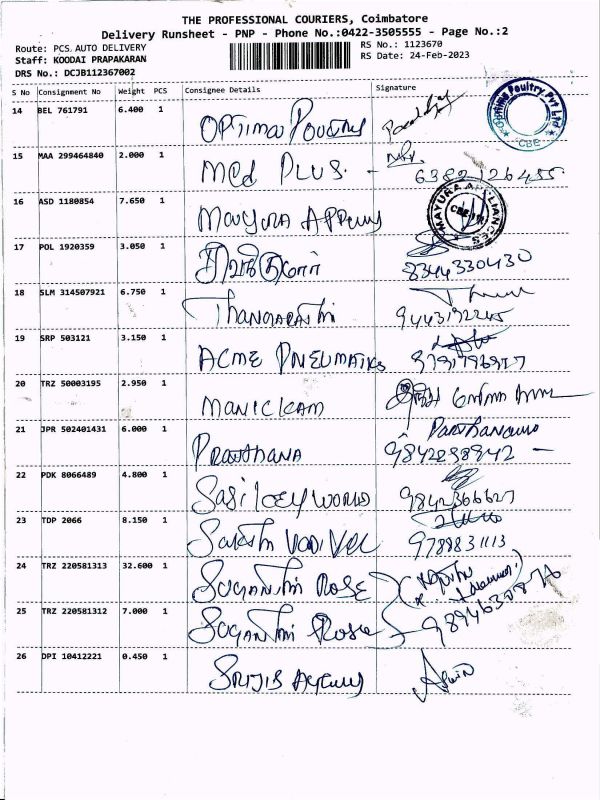 THE PROFESSIONAL COURIERS, Coimbatore
Delivery Runsheet - PNP - Phone No.:0422-3505555 - Page No.:2
Route: PCS AUTO DELIVERY RS No.: 1123670
Staff: KOODAI PRAPAKARAN RS Date: 24-Feb-2023
DRS No.: DCJB112367002
S No Consignment No Weight PCS Consignee Details Signature
14 BEL 761791 6.400 1 OPTIMA POULTRY
Optima Poultry Pvt Ltd CBE
15 MAA 299464840 2.000 1 MED PLUS. -
16 ASD 1180854 7.650 1 MAYURA
MAYURA APPLIANCES CBE
17 POL 1920359 3.050 1 8344330430
18 SLM 314507921 6.750 1
19 SRP 503121 3.150 1 ACME PNEUMATIKS
20 TRZ 50003195 2.950 1 MANICKAM
21 JPR 502401431 6.000 1 PRARTHANA
22 PDK 8066489 4.800 1 SASI KEY WORLD 9842366627
23 TDP 2066 8.150 1 SAKTHI VADIVEL 9789831113
24 TRZ 220581313 32.600 1 SUGANTHI ROSE
25 TRZ 220581312 7.000 1 SUGANTHI ROSE
26 DPI 10412221 0.450 1 SRIJIB AGENCY